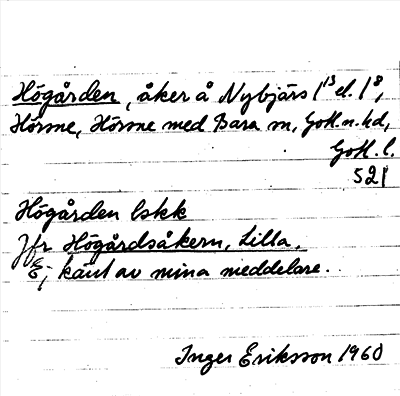 Högården, åker å Nybjärs 1¹³ el. 1⁸,
Hörsne, Hörsne med Bara sn, Gotl. n. hd,
Gotl. l.
521
Högården lskk
Jfr Högårdsåkern, Lilla.
Ej känt av mina meddelare.
Inger Eriksson 1960